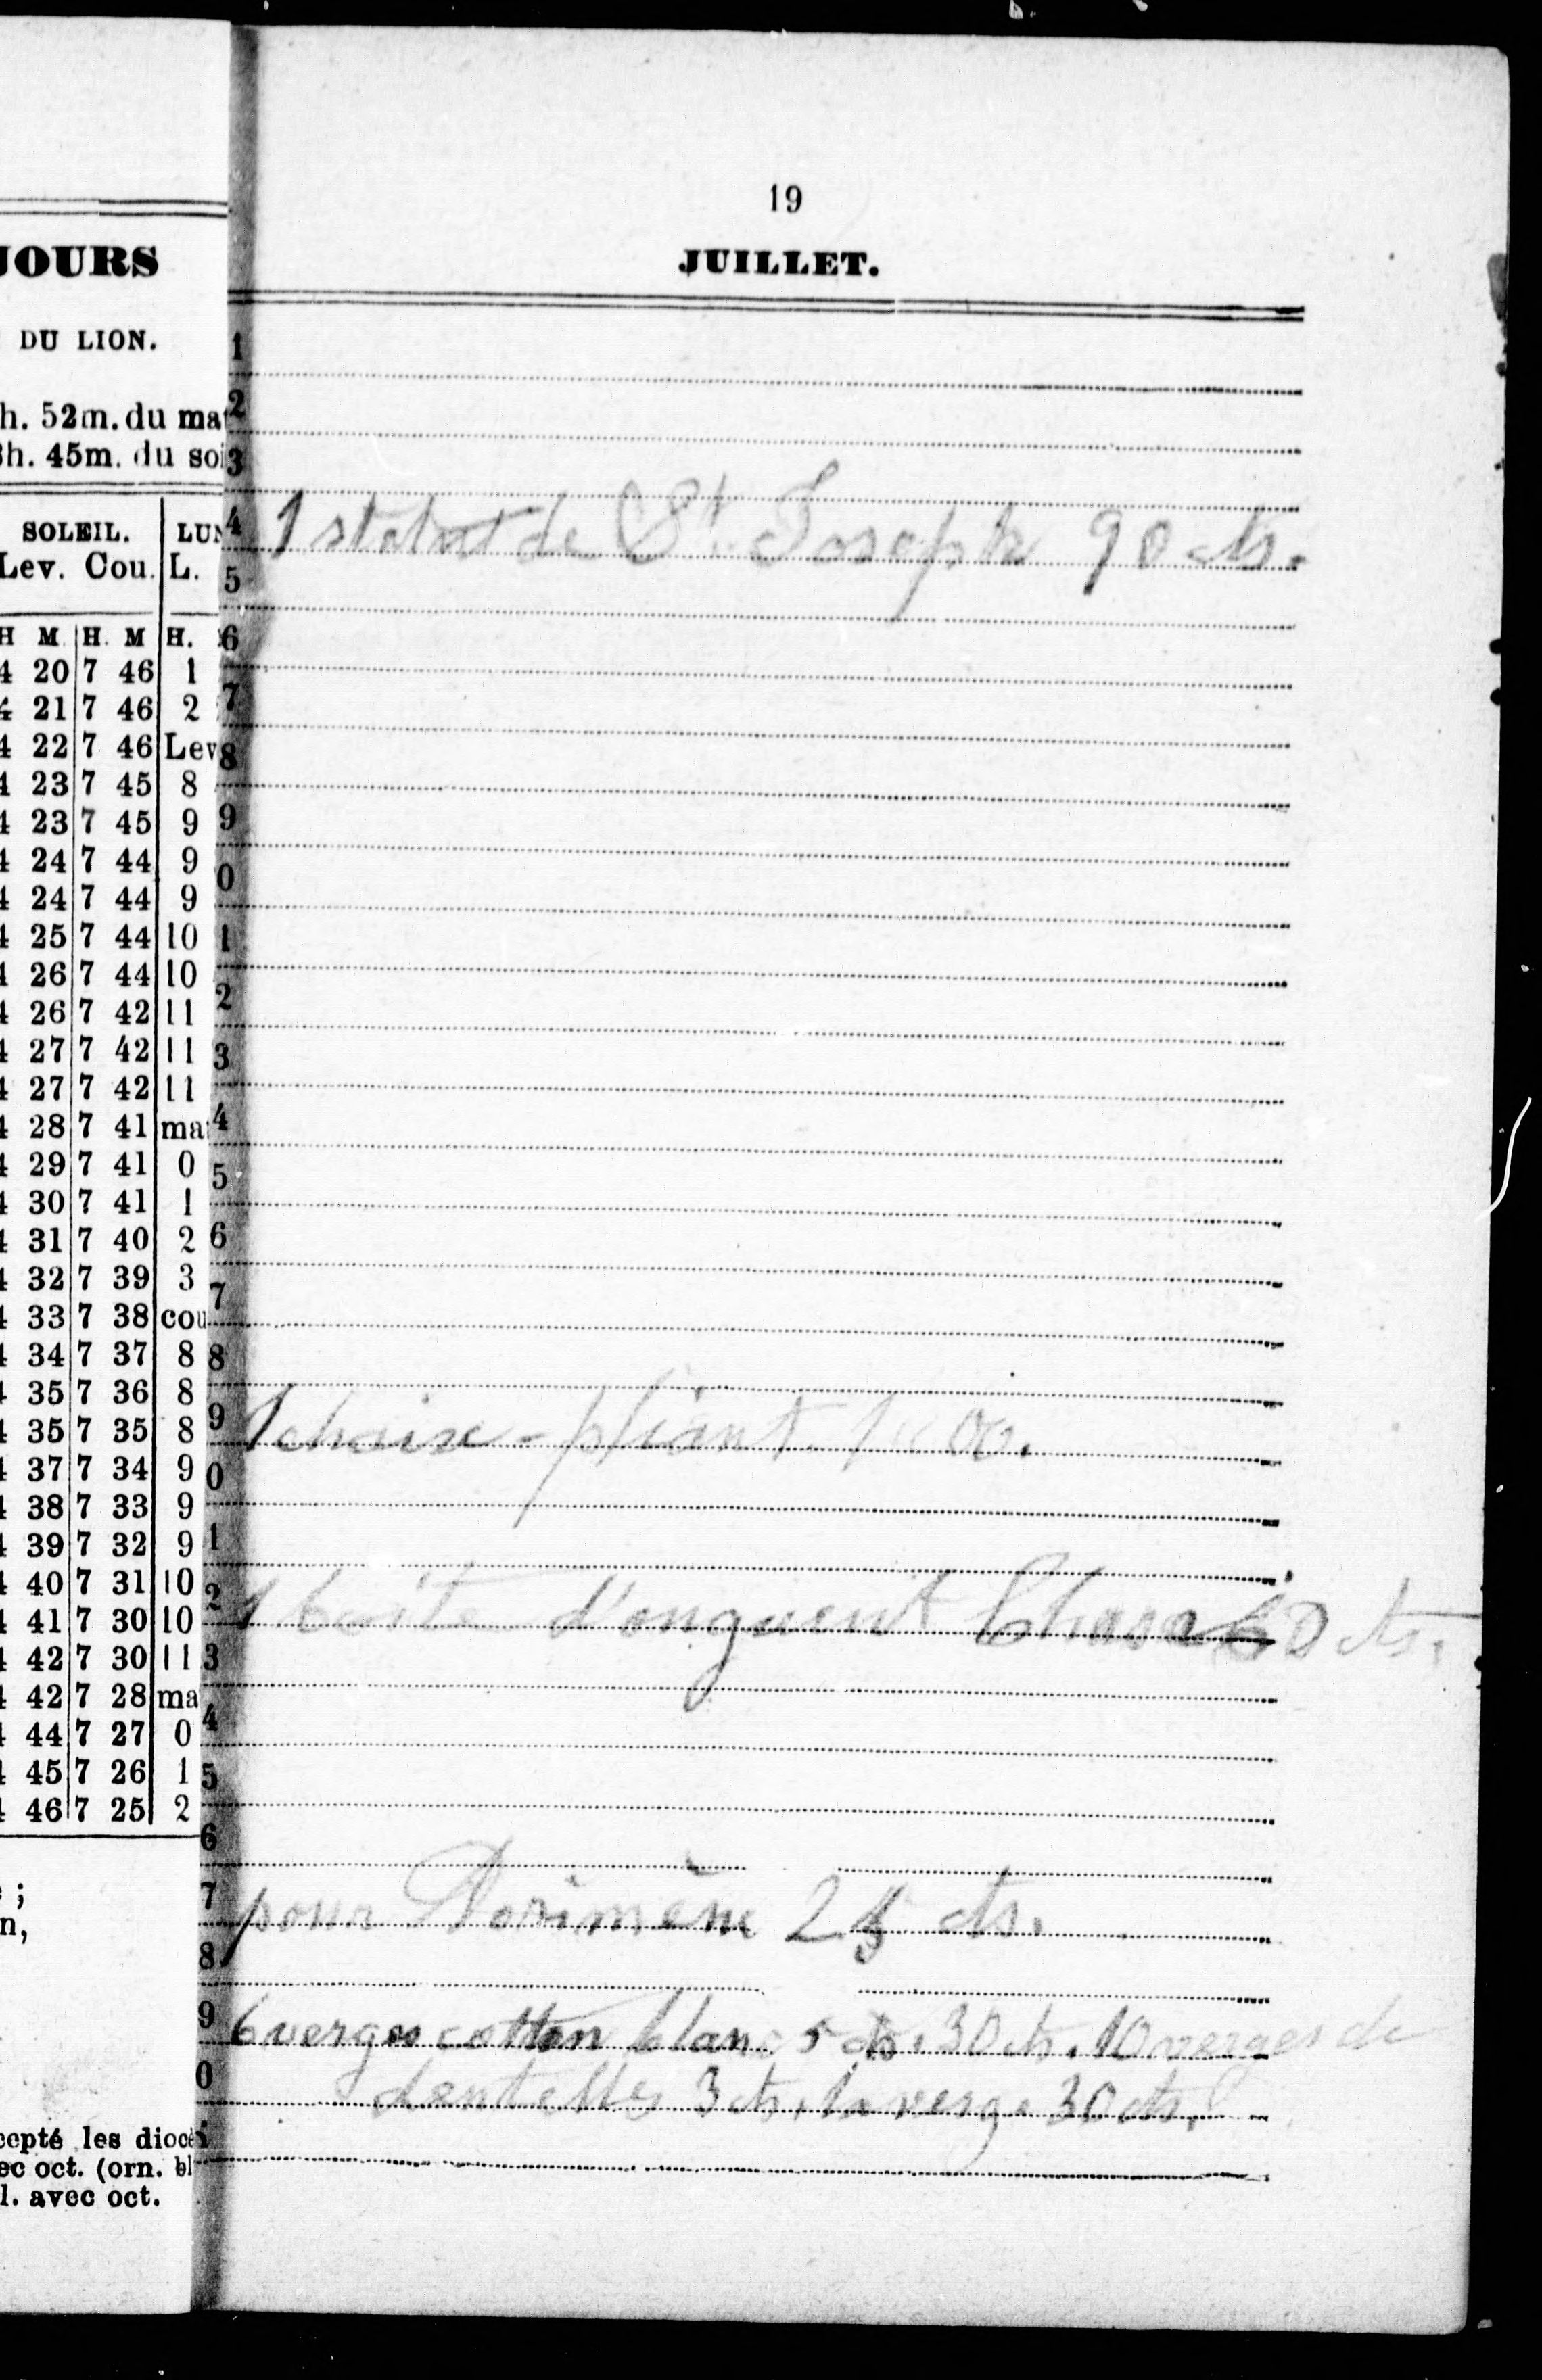 JOURS
DU LION.
h. 52m. du mat
3h. 45m. du soi
SOLEIL. LUN
Lev. Cou. L.
H M. H. M H.
4 20 7 46 1
4 21 7 46 2
4 22 7 46 Lev
4 23 7 45 8
4 23 7 45 9
4 24 7 44 9
4 24 7 44 9
4 25 7 44 10
4 26 7 44 10
4 26 7 42 11
4 27 7 42 11
4 27 7 42 11
4 28 7 41 mat
4 29 7 41 0
4 30 7 41 1
4 31 7 40 2
4 32 7 39 3
4 33 7 38 cou
4 34 7 37 8
4 35 7 36 8
4 35 7 35 8
4 37 7 34 9
4 38 7 33 9
4 39 7 32 9
4 40 7 31 10
4 41 7 30 10
4 42 7 30 11
4 42 7 28 ma
4 44 7 27 0
4 45 7 26 1
4 46 7 25 2
;
n,
cepté les diocè
ec oct. (orn. bl
l. avec oct.
19
JUILLET.
1
2
3
4 1 statut de St. Joseph 90 cts.
5
6
7
8
9
0
1
2
3
4
5
6
7
8
9 1 chaise-pliant 1 00.
0
1
2 1 boite d'onguent Chase 60 cts.
3
4
5
6
7 pour Dorimène 25 cts.
8
9 6 verges cotton blanc 5 cts. 30 cts. 10 verges de
0 dentelles 3 cts. la verge 30 cts.
1